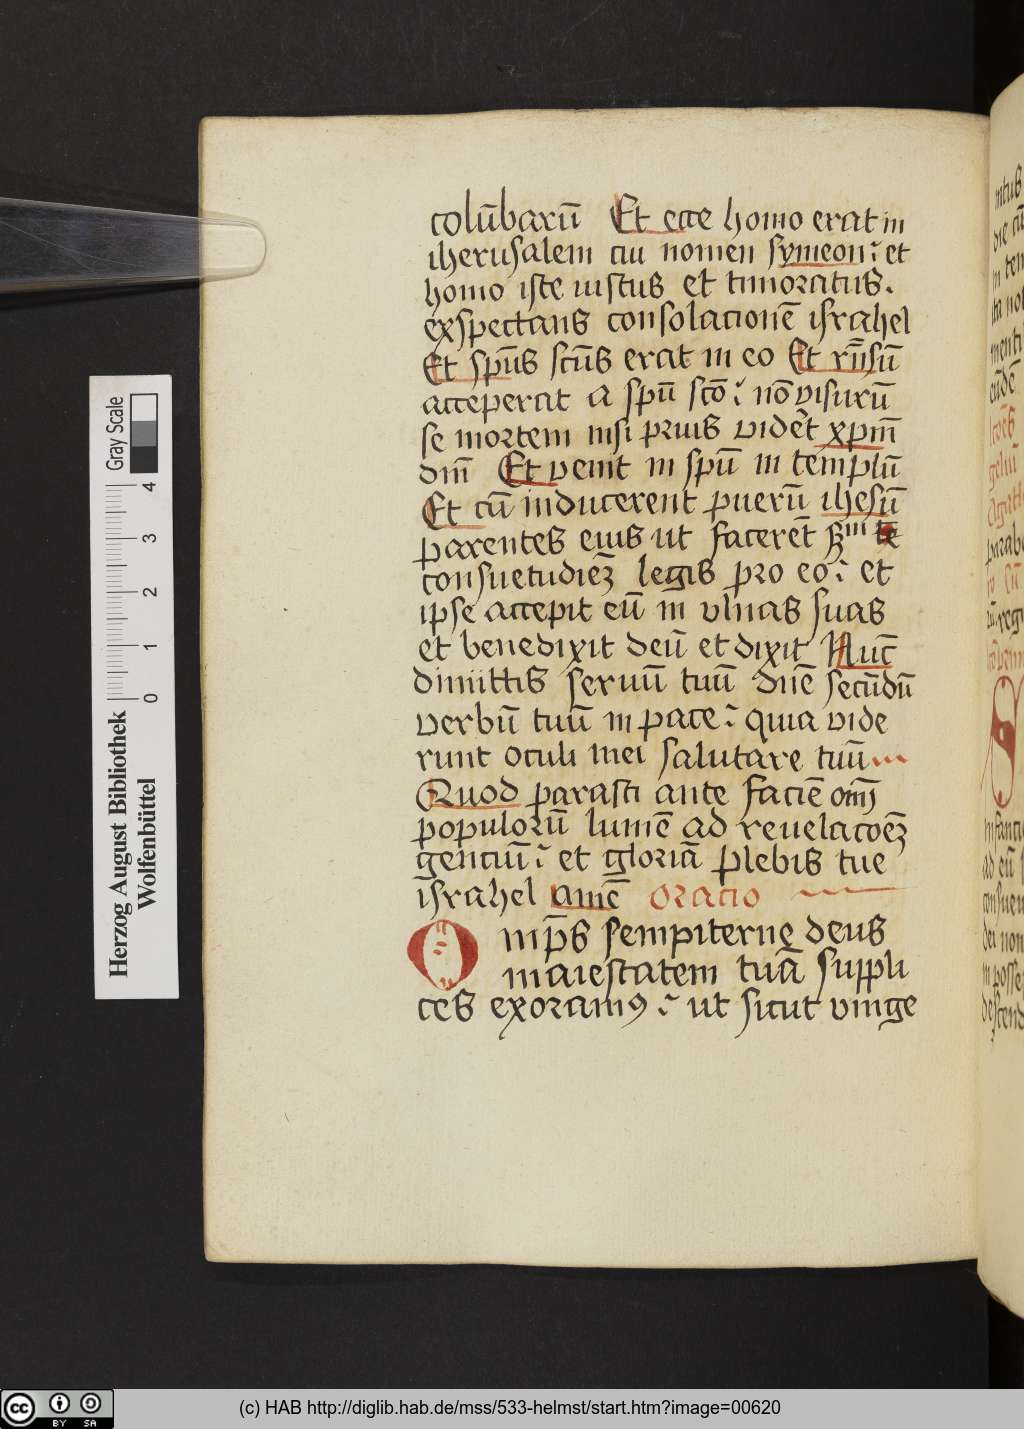 colūbarū Et ecce homo erat in
iherusalem cui nomen symeon: et
homo iste iustus et timoratus.
exspectans consolacionē israhel
Et spūs scūs erat in eo Et rn̄sū
acceperat a spū scō: nō visurū
se mortem nisi prius vidēt xpm̄
dnm̄ Et venit in spū in templū
Et cū inducerent puerū ihesū
parentes eius ut facerēt
consuetudiēz legis pro eo: et
ipse accepit eū in vlnas suas
et benedixit deū et dixit Nuc̄
dimittis seruū tuū dn̄e secūdū
verbū tuū in pace: quia vide
runt oculi mei salutare tuū
Quod parasti ante faciē om̄
populorū lumē ad reuelacoēz
genciū: et gloriā plebis tue
israhel amē oracio
Omp̄s sempiterne deus
maiestatem tuā suppli
ces exoramꝰ: ut sicut vnige
Gray Scale
0 1 2 3 4
Herzog August Bibliothek
Wolfenbüttel
cc BY SA
(c) HAB http://diglib.hab.de/mss/533-helmst/start.htm?image=00620